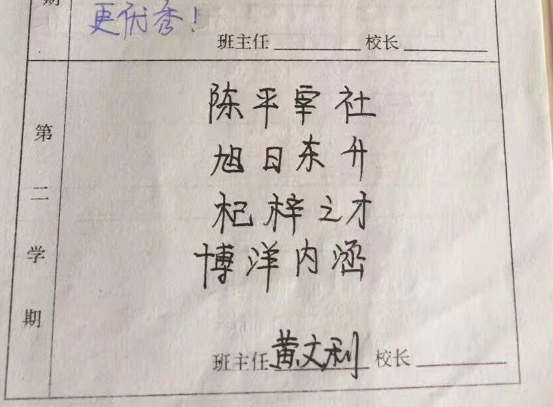 期
更优秀！
班主任 校长
第二学期
陈平宰社
旭日东升
杞梓之才
博洋内涵
班主任 黄文利 校长